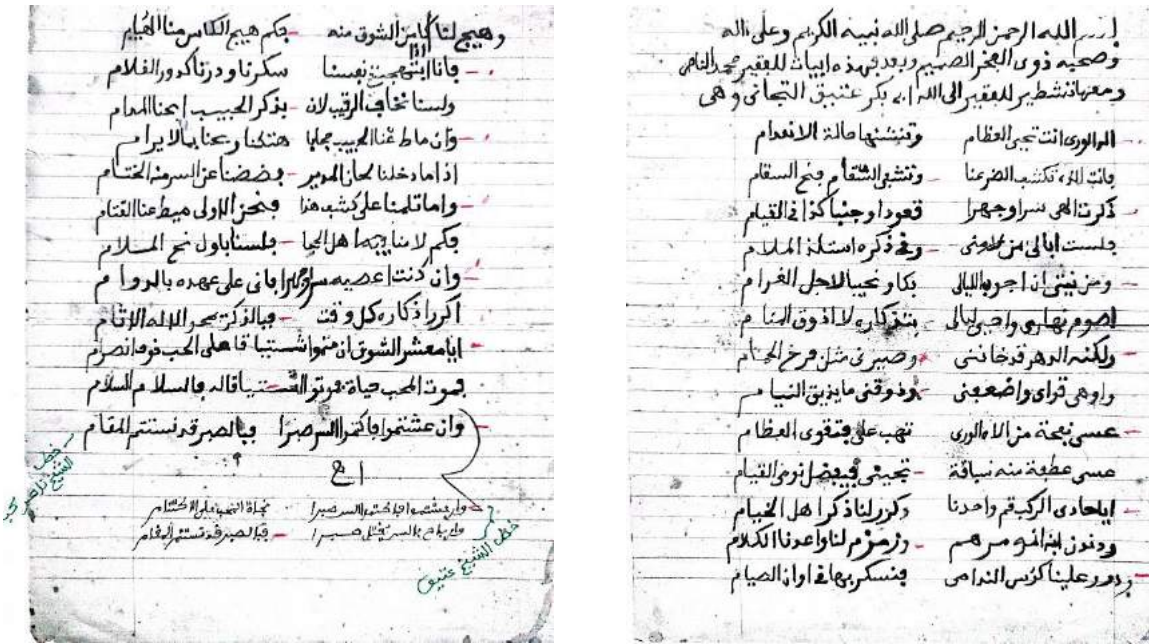 بسم الله الرحمن الرحيم صلى الله نبيه الكريم وعلى اله
وصحبه ذوى الفخر الصميم وبعد فهذه ابيات للفقير محمد الناصر
ومعها تشطير للفقير الى الله ابى بكر عتيق التجانى وهى
اله الورى انت تحيى العظام وتنشئها حالة الانعدام
فانت الذى تكشف الضر عنا وتشفى السقام فنح السقام
ذكرت الهى سرا وجهرا قعودا وجنبا كذا فى القيام
فلست ابالى من لامنى وفى ذكره استلذ الملام
ومن نيتى ان اجوب الليالى بكا ونحيبا لاجل الغرام
اصوم نهارى واحيى ليالى بتذكاره لا اذوق المنام
ولكنه الدهر قد خاننى وصيرنى مثل فرخ الحمام
واوهى قواى واضعفنى وذوقنى ما يذيق النيام
عسى نفحة من الاه الورى تهب على فتقوى العظام
عسى عطفة منه سباقة تجيئنى فيفضل نومى القيام
ايا حادى الركب قم واحدنا وكرر لنا ذكر اهل الخيام
ودندن وزمزم لنا واعد نا الكلام
ودور علينا كؤس الندامى فنسكر بها فى اوان الصيام
وهيج لنا كامن الشوق منه فكم هيج الكاس منا الهيام
فانا اذا ابتهجت نفسنا سكرنا ودرنا كدور الغلام
ولسنا نخاف الرقيب لان بذكر الحبيب ابحنا المدام
وان ماط عنا الحبيب حجابا هتكنا وبحنا بما لا يرام
اذا ما دخلنا لحان المدير فضضنا عن السر منه الختام
واما تلمنا على كشف هذا فنحن الاولى ميط عنا القتام
فكم لامنا فيه اهل الحجا فلسنا باول نحم الملام
وان كنت اعصيه سرا وجهرا فانى على عهده بالدوام
اكرر اذكاره كل وقت فبالذكر يمحو الاله الاثام
ايا معشر الشوق ان متموا اشتياقا على الحب فوه انصرام
فموت المحب حياة فموتوا اشتياقا له فالسلام السلام
وان عشتموا فاكتموا السر صبرا فبالصبر قد نستتم المقام
اﻫ
وان عشتموا فاكتموا السر صبرا نجاة المحب على الاكتتام
وان باح بالسر يقتل صبرا فبالصبر قد تستتم المقام
خط الشيخ ناصر
خط الشيخ عتيق